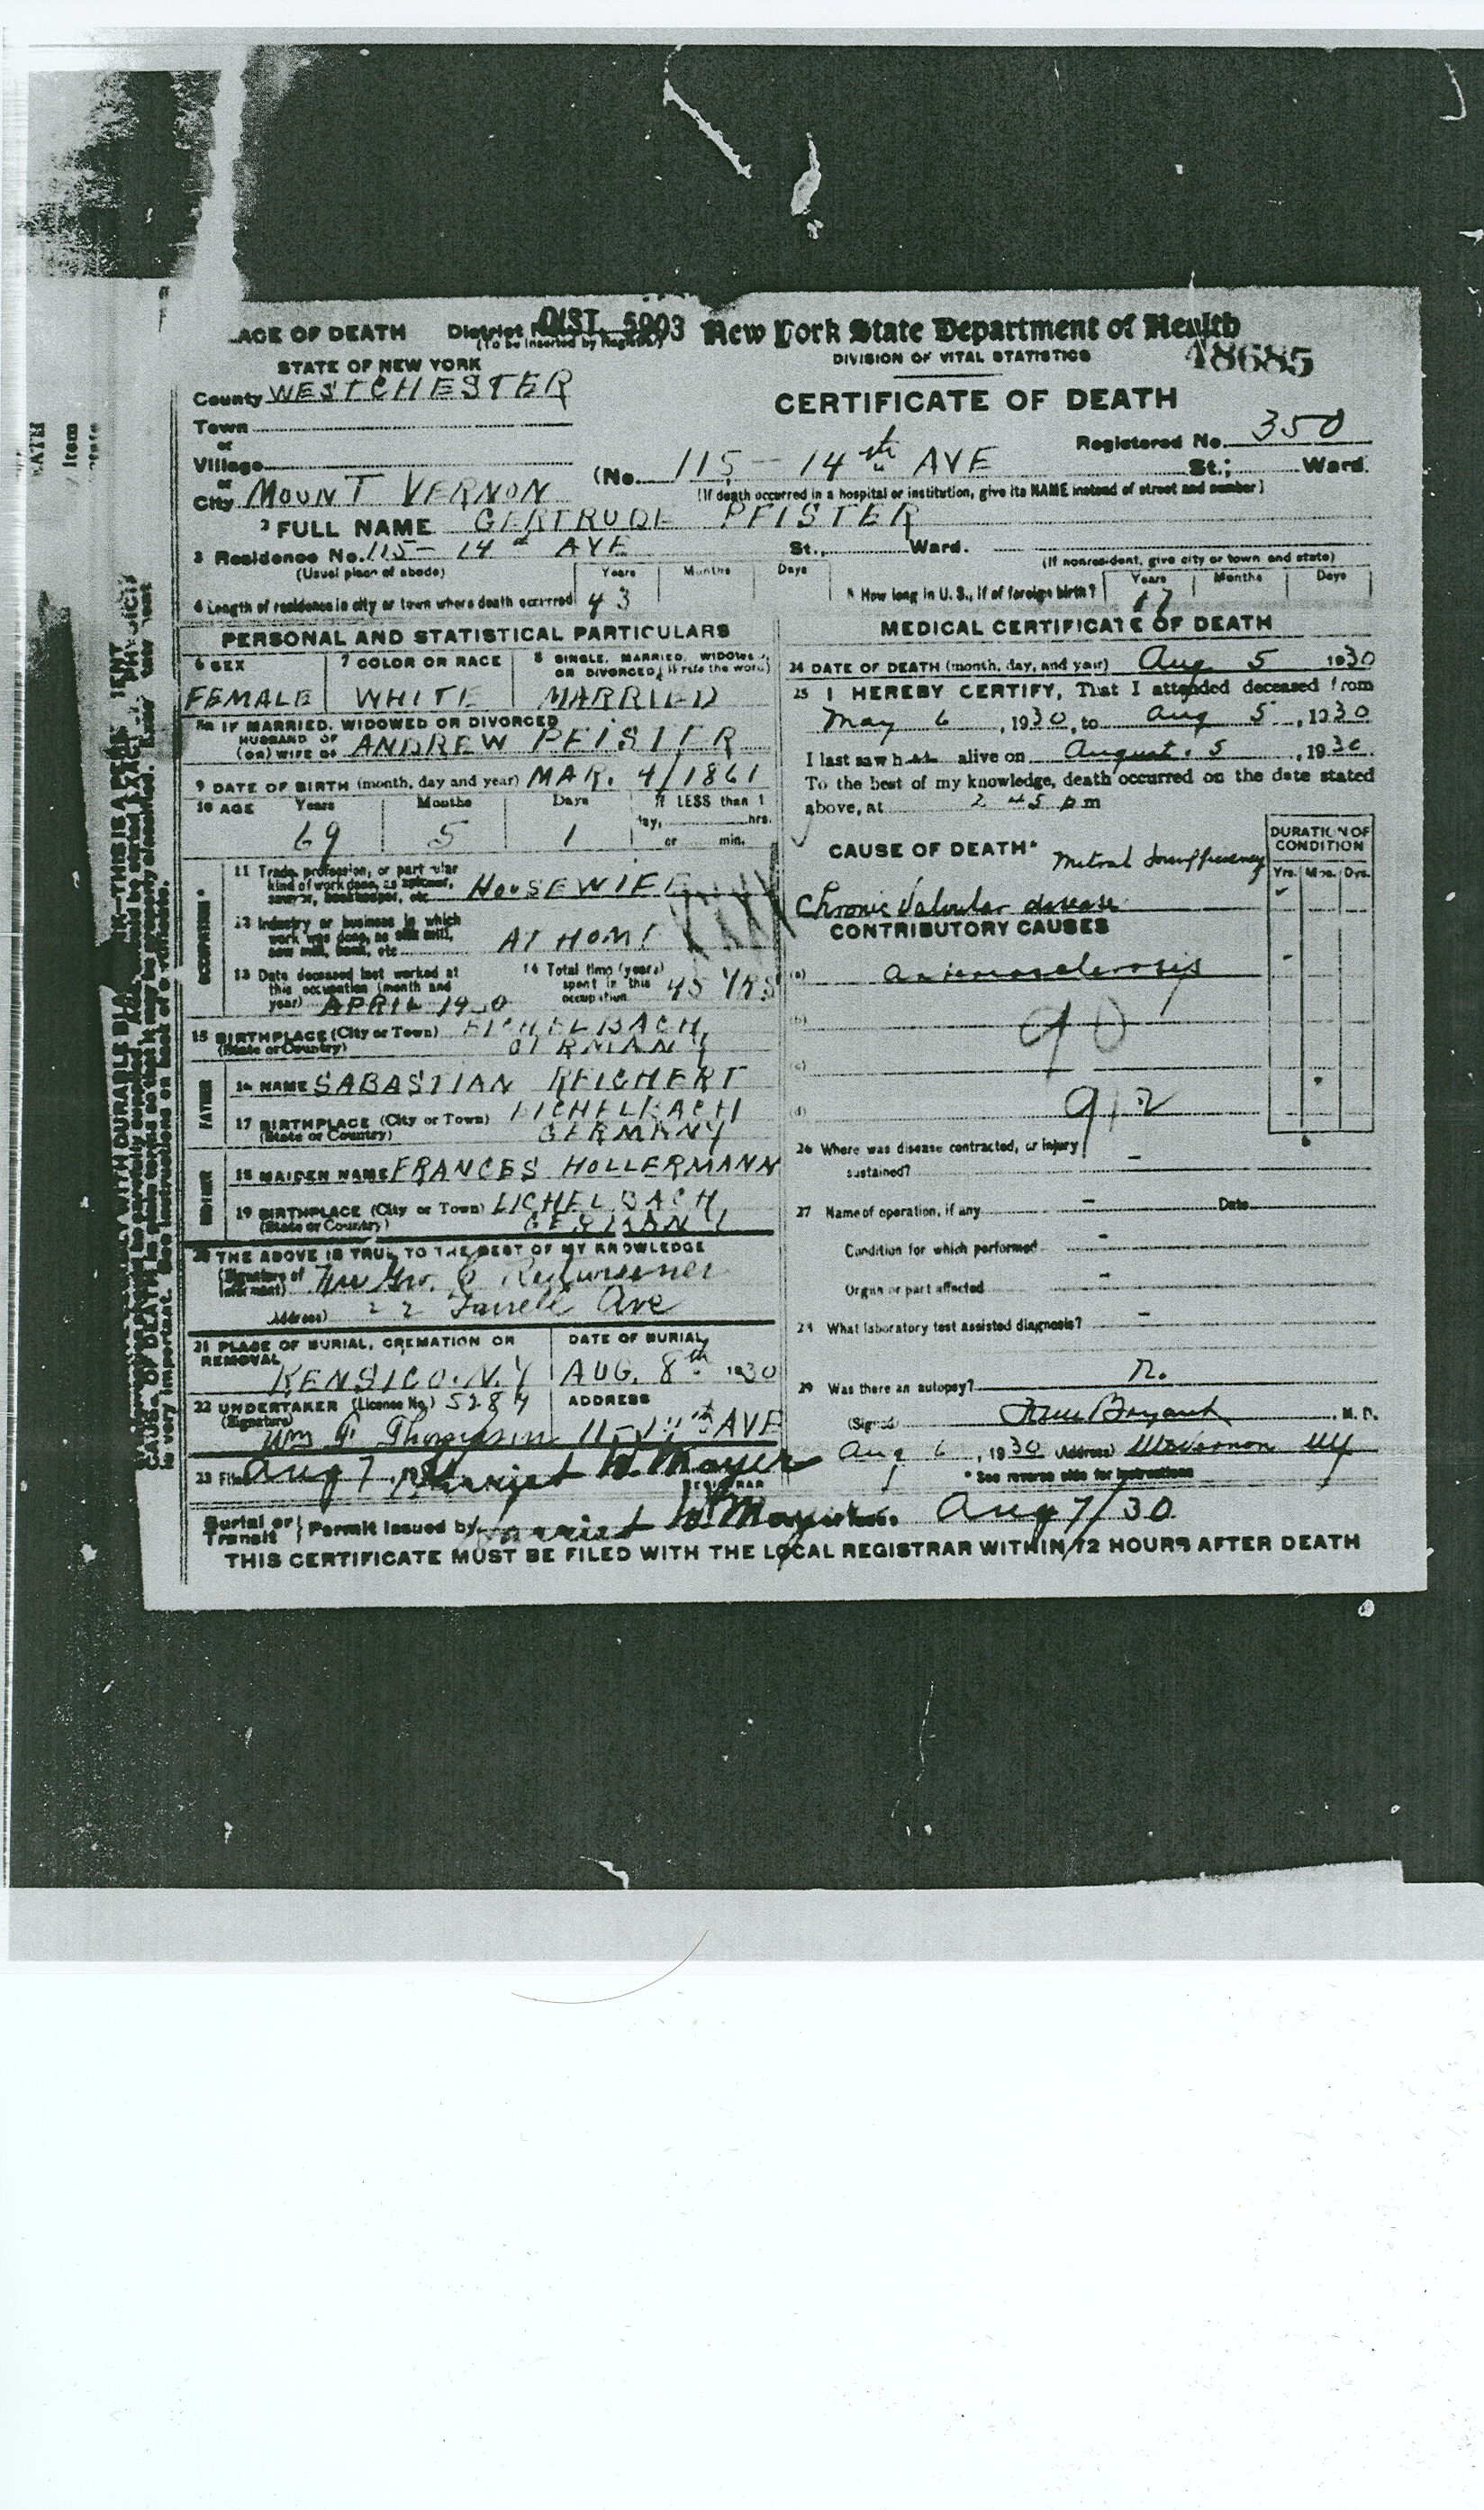 ACE OF DEATH
DIST. 5903
(To be inserted by Registrar)
New York State Department of Health
STATE OF NEW YORK
DIVISION OF VITAL STATISTICS
48685
County WESTCHESTER
CERTIFICATE OF DEATH
Town
or
Registered No. 350
Village
or
(No. 115 - 14th AVE St.; Ward.
City MOUNT VERNON
(If death occurred in a hospital or institution, give its NAME instead of street and number)
2 FULL NAME GERTRUDE PFISTER
3 Residence No. 115 - 14th AVE St., Ward.
(Usual place of abode)
(If nonresident, give city or town and state)
Years Months Days
Years Months Days
4 Length of residence in city or town where death occurred 43
How long in U. S., if of foreign birth?
PERSONAL AND STATISTICAL PARTICULARS
6 SEX
FEMALE
7 COLOR OR RACE
WHITE
8 SINGLE, MARRIED, WIDOWED,
OR DIVORCED (Write the word)
MARRIED
IF MARRIED, WIDOWED OR DIVORCED
HUSBAND OF
(OR) WIFE OF ANDREW PFISTER
9 DATE OF BIRTH (month, day and year) MAR. 4/1861
10 AGE Years Months Days If LESS than 1
day, hrs.
69 5 1 or min.
OCCUPATION
11 Trade, profession, or particular
kind of work done, as spinner,
sawyer, bookkeeper, etc HOUSEWIFE
12 Industry or business in which
work was done, as silk mill,
saw mill, bank, etc AT HOME
13 Date deceased last worked at
this occupation (month and
year) APRIL 1930
14 Total time (years)
spent in this
occupation 45 YRS
15 BIRTHPLACE (City or Town) EICHELBACH,
(State or Country) GERMANY
FATHER
16 NAME SABASTIAN REICHERT
17 BIRTHPLACE (City or Town) EICHELBACH
(State or Country) GERMANY
MOTHER
18 MAIDEN NAME FRANCES HOLLERMANN
19 BIRTHPLACE (City or Town) EICHELBACH,
(State or Country) GERMANY
20 THE ABOVE IS TRUE TO THE BEST OF MY KNOWLEDGE
(Signature of
informant)
Address) 22 Farrell Ave
21 PLACE OF BURIAL, CREMATION OR
REMOVAL
KENSICO. N.Y
DATE OF BURIAL
AUG. 8th 1930
22 UNDERTAKER (License No.) 5284
(Signature)
Wm F Thompson
ADDRESS
AVE
23 Filed Aug 7, Harriet W. Mayer
REGISTRAR
MEDICAL CERTIFICATE OF DEATH
24 DATE OF DEATH (month, day, and year) Aug 5 1930
25 I HEREBY CERTIFY, That I attended deceased from
May 6, 1930, to Aug 5, 1930
I last saw her alive on August 5, 1930.
To the best of my knowledge, death occurred on the date stated
above, at 2 45 pm
DURATION OF
CONDITION
Yrs. Mos. Dys.
CAUSE OF DEATH* Mitral Insufficiency
Chronic Valvular disease
CONTRIBUTORY CAUSES
(a) arteriosclerosis
(b)
90
(c)
(d) 92
26 Where was disease contracted, or injury
sustained? -
27 Name of operation, if any - Date
Condition for which performed -
Organ or part affected -
What laboratory test assisted diagnosis? -
29 Was there an autopsy?
(Signed) Bryant, M. D.
Aug 6, 1930 (Address) Mt Vernon NY
* See reverse side for instructions
Burial or
Transit } Permit issued by Harriet W. Mayer Aug 7/30
THIS CERTIFICATE MUST BE FILED WITH THE LOCAL REGISTRAR WITHIN 72 HOURS AFTER DEATH